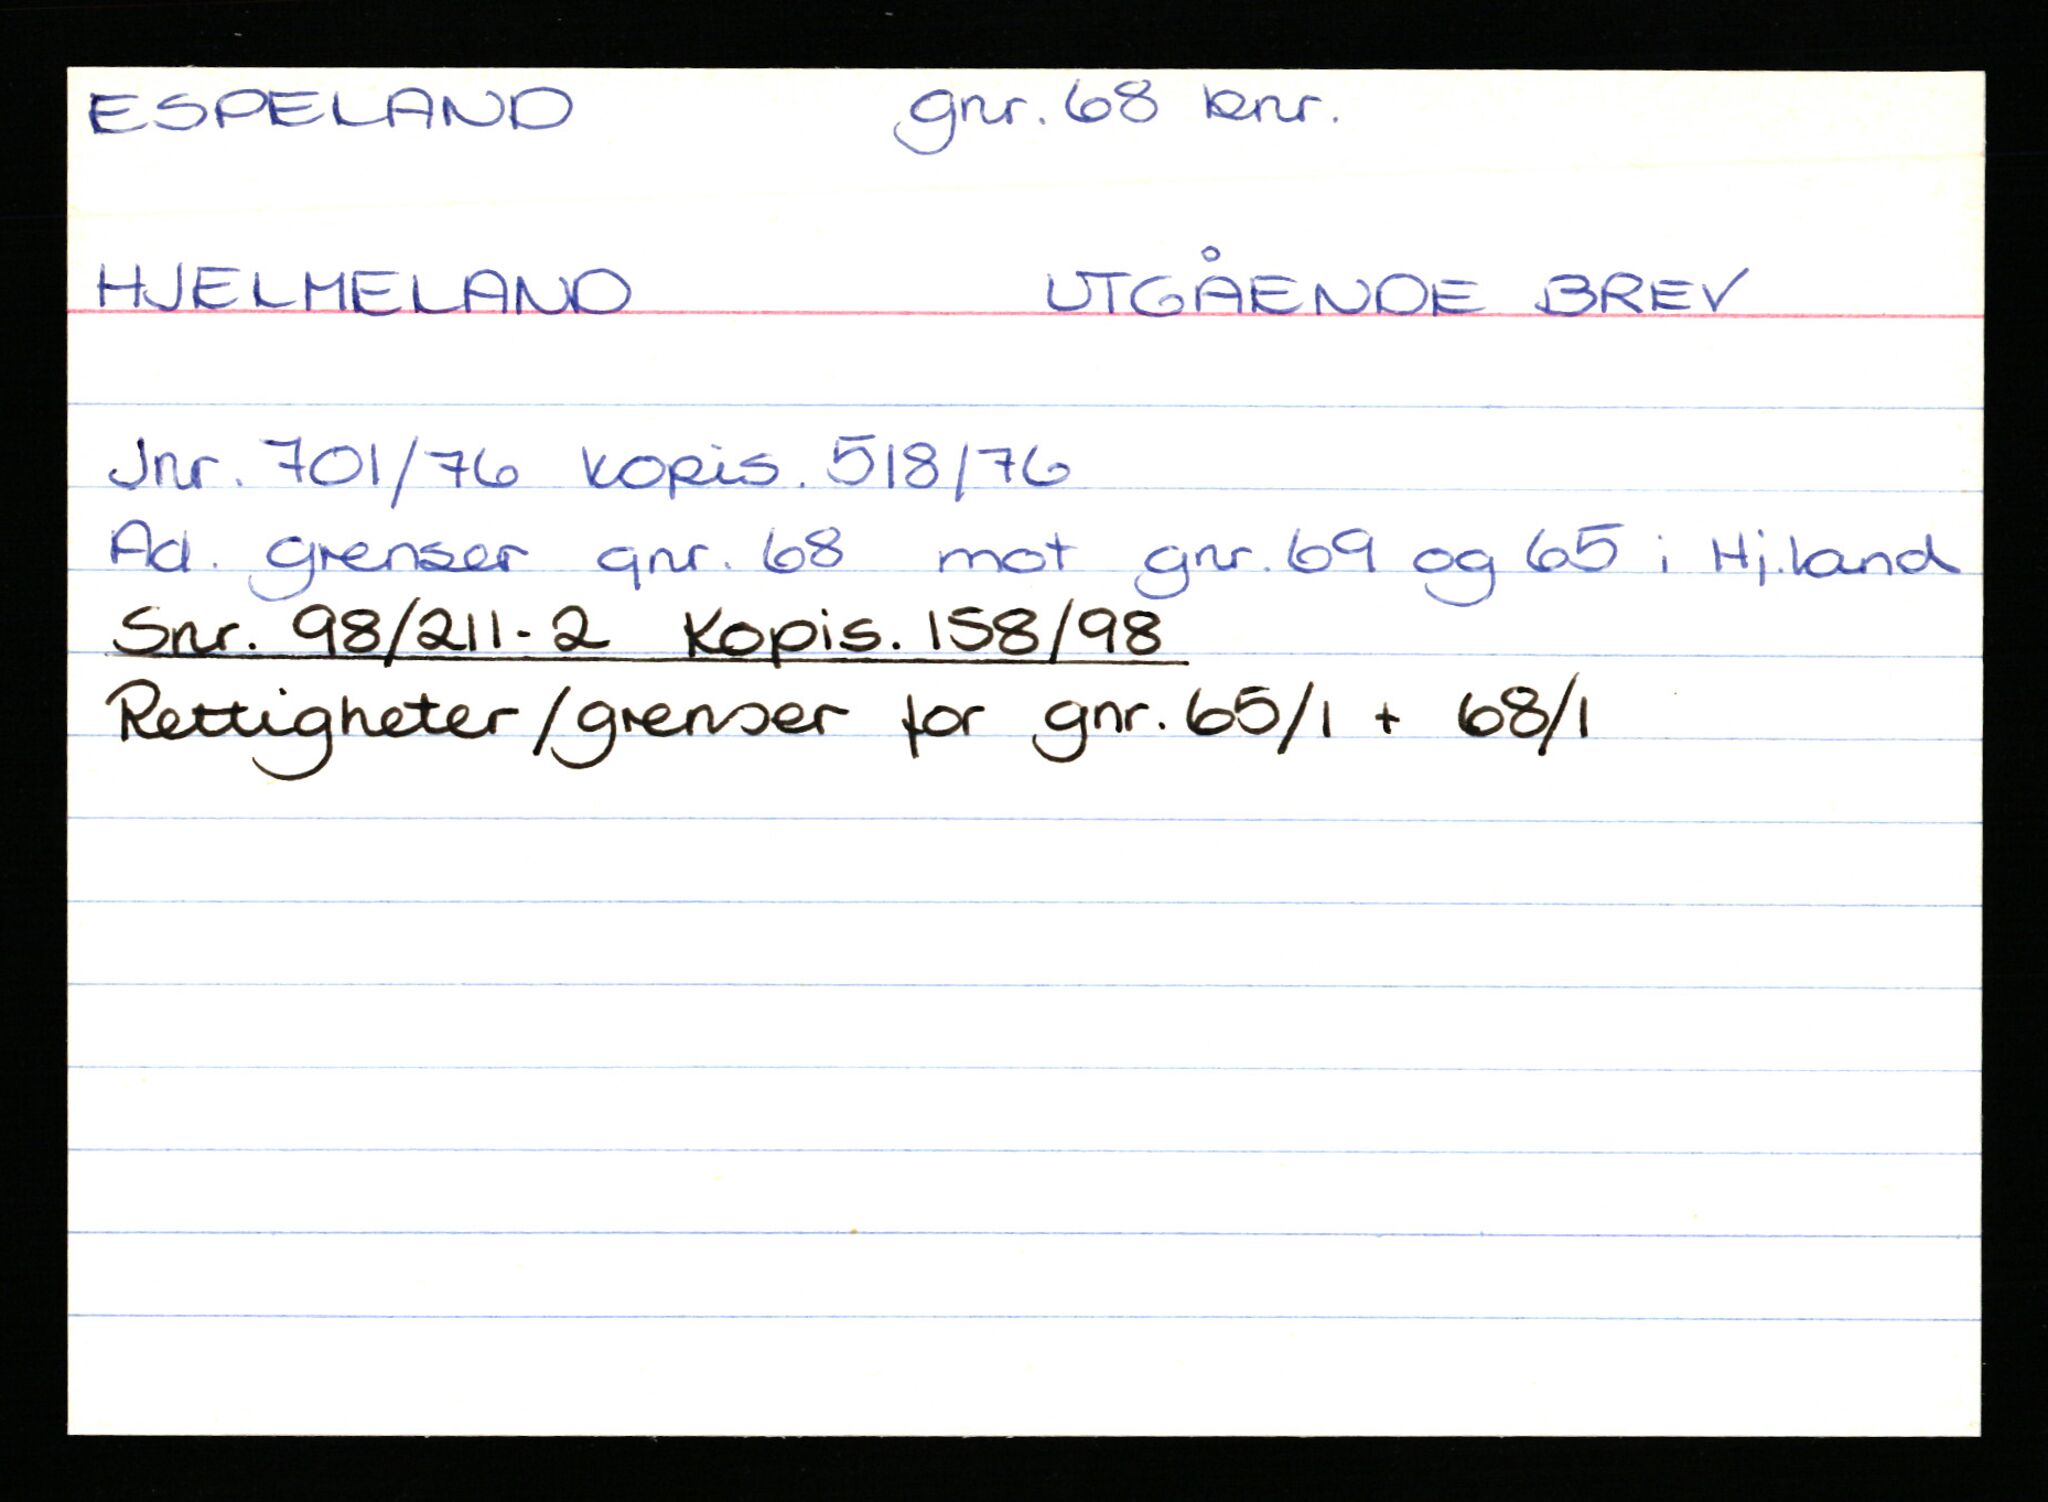 ESPELAND gnr. 68 bnr.
HJELMELAND UTGÅENDE BREV
Jnr. 701/76 kopis. 518/76
Ad. grenser gnr. 68 mot gnr. 69 og 65 i Hj.land
Snr. 98/211-2 Kopis. 158/98
Rettigheter/grenser for gnr. 65/1 + 68/1